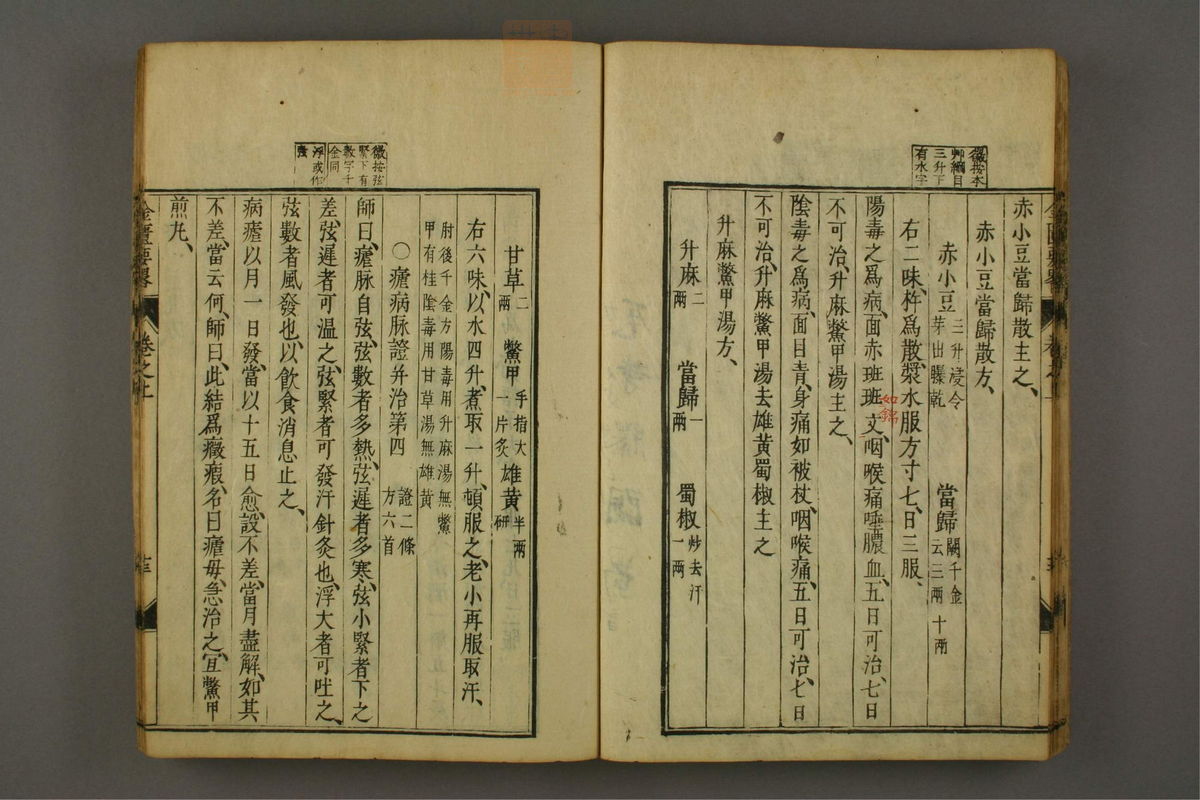 徽按本
艸綱目
三升下
有水字
赤小豆當歸散主之、
赤小豆當歸散方、
赤小豆三升浸令芽出曝乾 當歸闕千金云三兩十兩
右二味、杵爲散、漿水服方寸七、日三服、
陽毒之爲病、面赤班班文、咽喉痛唾膿血、五日可治、七日
如錦
不可治、升麻鱉甲湯主之、
陰毒之爲病、面目青、身痛如被杖、咽喉痛、五日可治、七日
不可治、升麻鱉甲湯去雄黃蜀椒主之
升麻鱉甲湯方、
升麻二兩 當歸一兩 蜀椒炒去汗一兩
徽按弦
緊下有
數字千
金同
浮或作
甘草二兩 鱉甲手指大一片炙 雄黃半兩研
右六味、以水四升、煮取一升、頓服之、老小再服取汗、
肘後千金方陽毒用升麻湯無鱉
甲有桂陰毒用甘草湯無雄黃
○瘧病脉證并治第四 證二條方六首
師曰、瘧脉自弦、弦數者多熱、弦遲者多寒、弦小緊者下之
差、弦遲者可温之、弦緊者可發汗針灸也、浮大者可吐之、
弦數者風發也、以飲食消息止之、
病瘧以月一日發、當以十五日愈、設不差、當月盡解、如其
不差、當云何、師曰、此結爲癥瘕、名曰瘧母、急治之、宜鱉甲
煎丸、
金匱要畧 卷之上